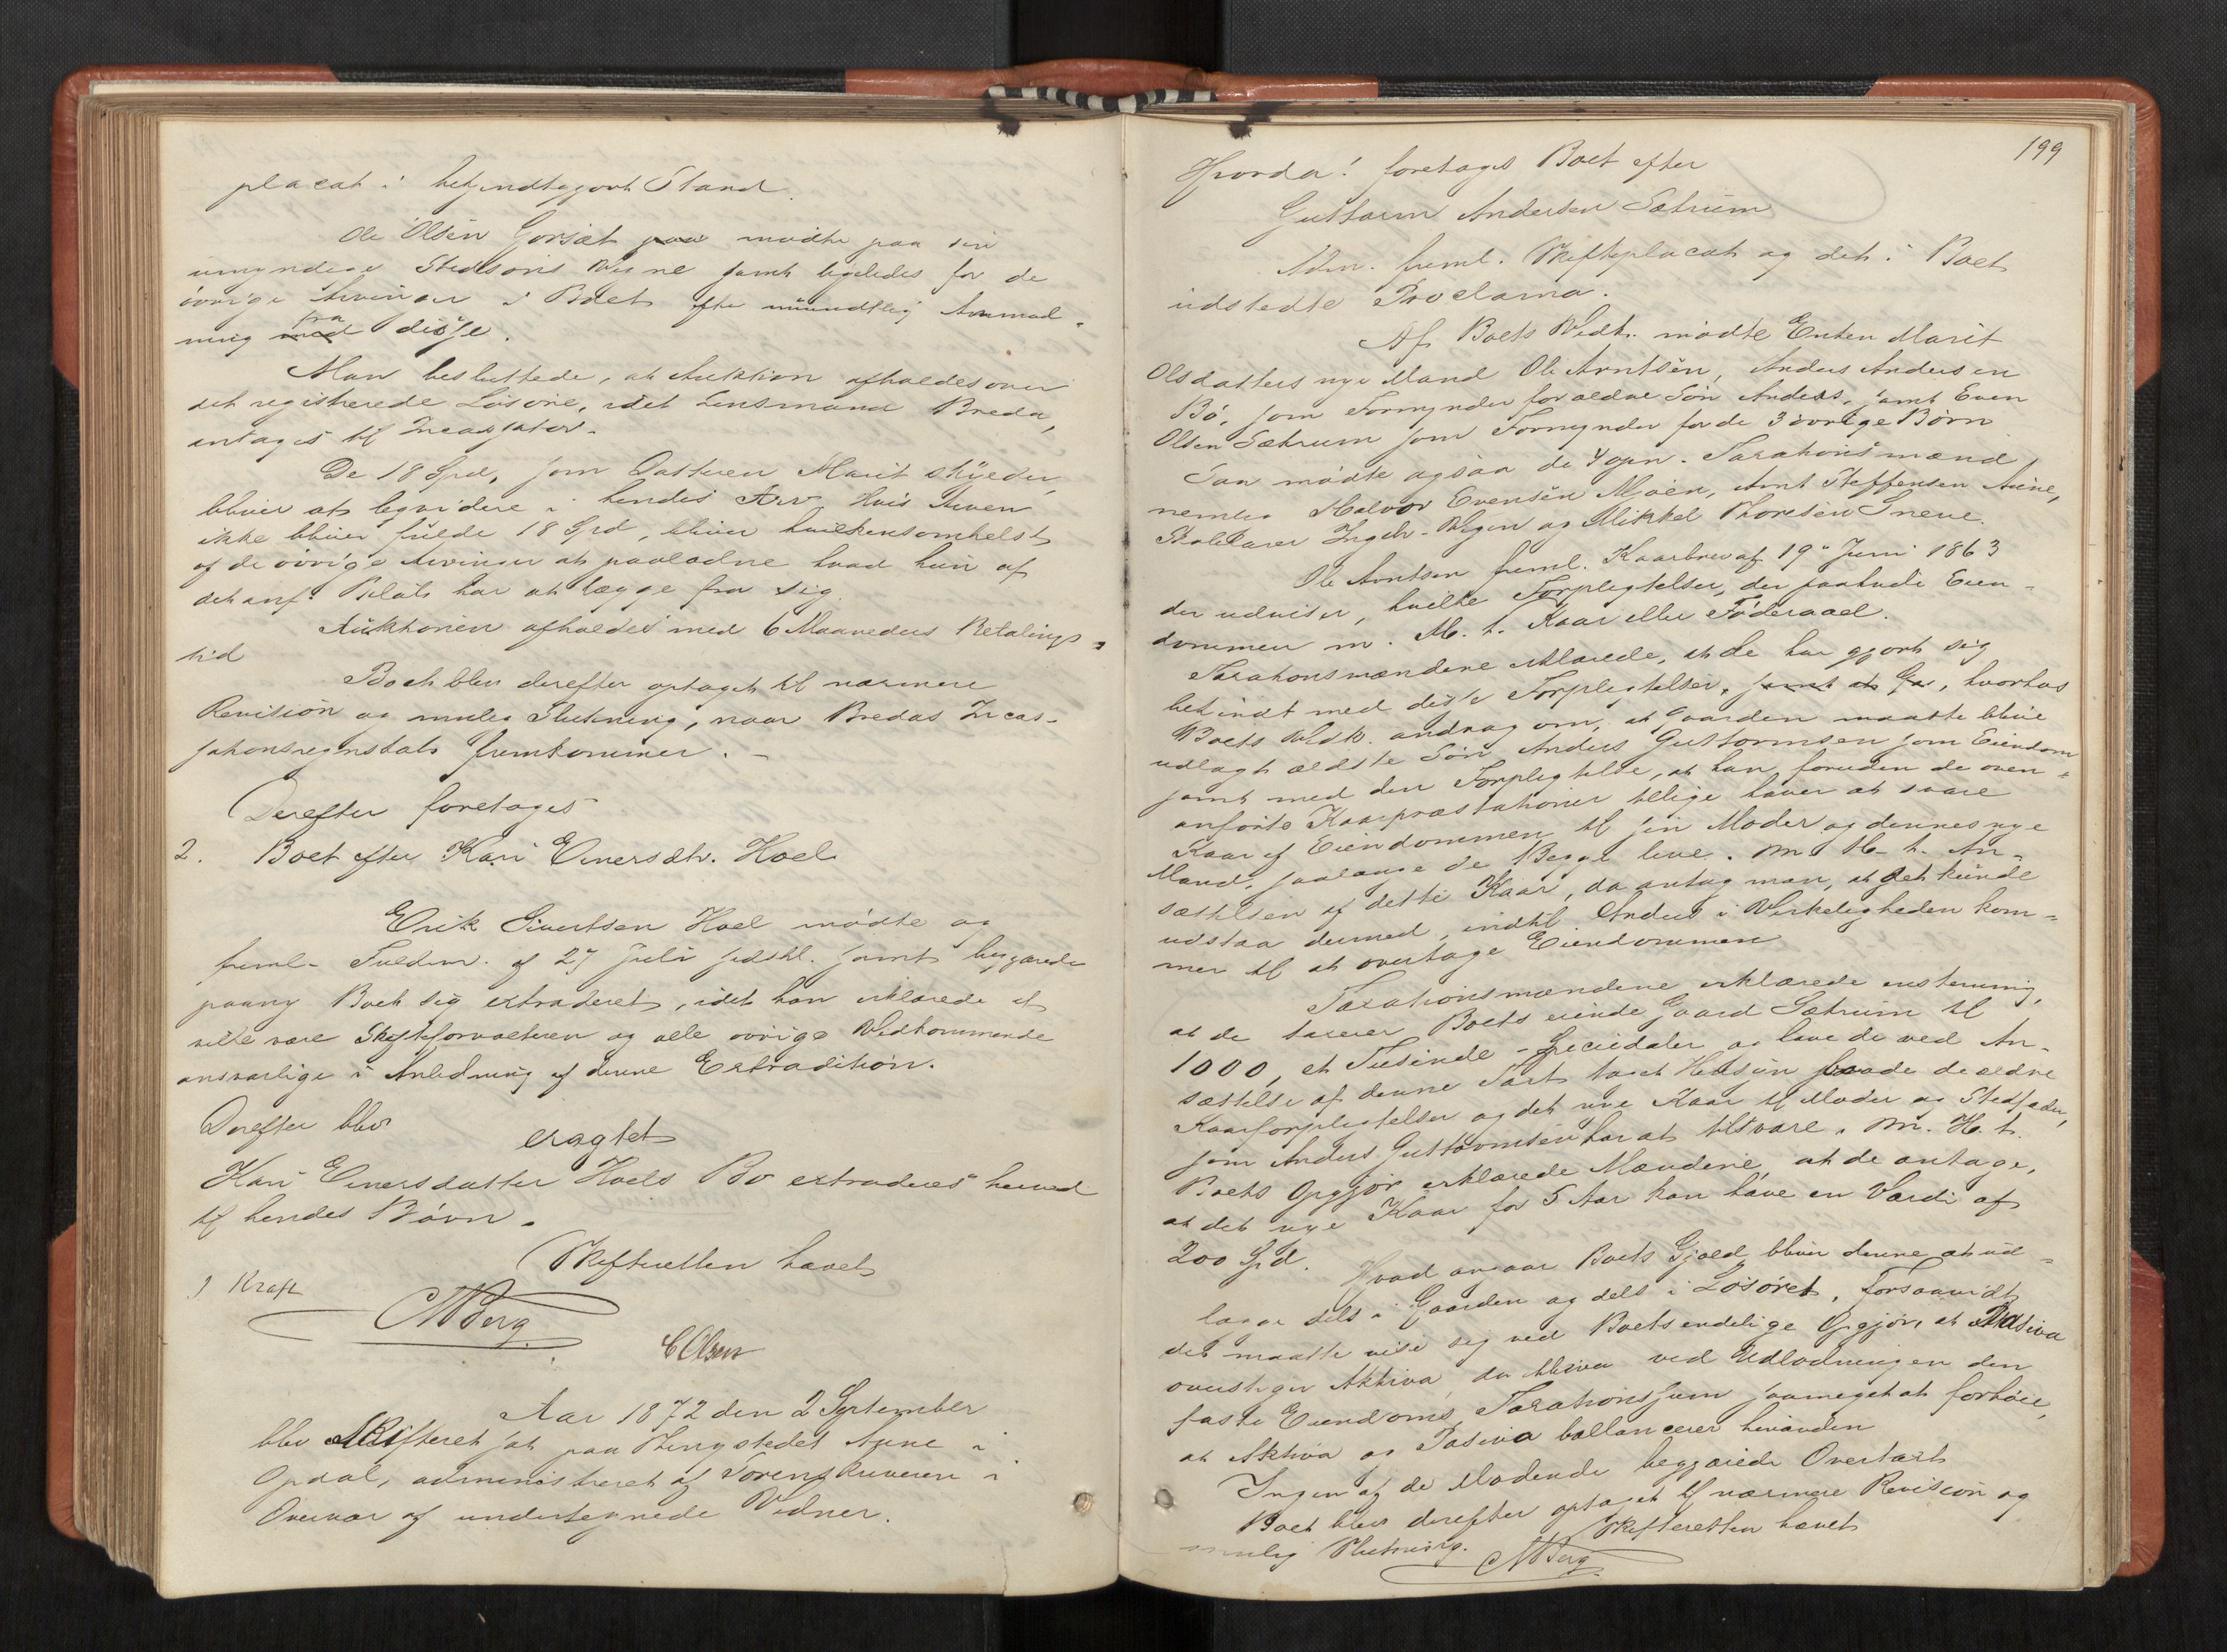 placat i bekjendtgjort Stand.
Ole Olsen Gorsæt paa mødte paa sin
umyndige Stedsøns Vegne samt ligeledes for de
øvrige Arvinger i Boet efter mundtlig Anmod-
ning med fra disse.
Man besluttede, at Auktion afholdes over
det registrerede Løsøre, idet Lensmand Breda,
antages til Incassator.
De 18 Spd, som Datteren Marit skylder,
bliver at liqvidere i hendes Arv. Hvis Arven
ikke bliver fulde 18 Spd, bliver hvilkensomhelst
af de øvrige Arvinger at paaladne hvad hun af
det anf. Beløb har at lægge fra sig.
Auktionen afholdes med 6 Maaneders Betalings-
tid
Boet blev derefter optaget til nærmere
Revision og mulig Slutning, naar Bredas Incas-
sationsregnskab fremkommer. -
Derefter foretoges
2. Boet efter Kari Einersdtr. Hoel
Erik Sivertsen Hoel mødte og
freml. Fuldm. af 27 Juli sidstl. samt begjærede
paany Boet sig extraderet, idet han erklærede at
ville være Skifteforvalteren og alle øvrige Vedkommende
ansvarlige i Anledning af denne Extradition.
Derefter blev
eragtet
Kari Einersdatter Hoels Bo extraderes herved
til hendes Børn.
Skifteretten hævet
J Kraft
MBerg
C Olsen
Aar 1872 den 2 September
blev Skifteret sat paa Thingstedet Aune i
Opdal, administreret af Sorenskriveren i
Overvær af undertegnede Vidner.
199
Hvorda! foretoges Boet efter
Guttorm Andersen Sætrum
Adm. freml. Skifteplacat og det i Boet
udstedte Proclama.
Af Boets Vedk. mødte Enken Marit
Olsdatters nye Mand Ole Arntsen, Anders Andersen
Bö, som Formynder for ældre Søn Anders, samt Even
Olsen Sætrum som Formynder for de 3 øvrige Børn
Saa mødte ogsaa de 4 opn. Taxationsmænd,
nemlig Halvor Evensen Mjøen, Arnt Steffensen Aune,
Ingebr. og Mikkel Thoresen Sneve.
Ole Arntsen freml. Kaarbrev af 19de Juni 1863
der udviser, hvilke Forpligtelser, der paahvile Eien-
dommen m. H. t. Kaar eller Föderaad.
Taxationsmændene erklærede, at de har gjort sig
bekjendt med disse Forpligtelser, samt at Ga, hvorhos
Boets Vedk. androg om, at Gaarden maatte blive
udlagt ældste Søn Anders Guttormsen som Eiendom
samt med den Forpligtelse, at han foruden de oven-
anførte Kaarpræstationer tillige haver at svare
Kaar af Eiendommen til sin Moder og dennes nye
Mand, saalænge de Begge leve. M. H. t. An-
sættelsen af dette Kaar, da antog man, at det kunde
udstaa dermed, indtil Anders i Virkeligheden kom-
mer til at overtage Eiendommen
Taxationsmændene erklærede enstemmig,
at de taxerer Boets eiende Gaard Sætrum til
1000, et Tusinde - Speciedaler og have de ved An-
sættelse af denne Taxt taget Hensyn baade de ældre
Kaarforpligtelser og det nye Kaar til Moder og Stedfader,
som Anders Guttormsen har at tilsvare. M. H. t.
Boets Opgjør erklærede Mændene, at de antage,
at det nye Kaar for 5 Aar kan have en Værdi af
200 Spd.
Hvad angaar Boets Gjæld, bliver denne at ud-
lægge dels i Gaarden og dels i Løsøret. Forsaavidt
det maatte vise sig ved Boets endelige Opgjør, at Pasiva
overstiger Aktiva, da bliver ved Udlodningen den
faste Eiendoms Taxationssum saameget at forhøie,
at Aktiva og Pasiva ballancerer hinanden
Ingen af de Mødende begjærede Overtaxt
Boet blev derefter optaget til nærmere Revision og
mulig Slutning.
Skifteretten hævet
MBerg